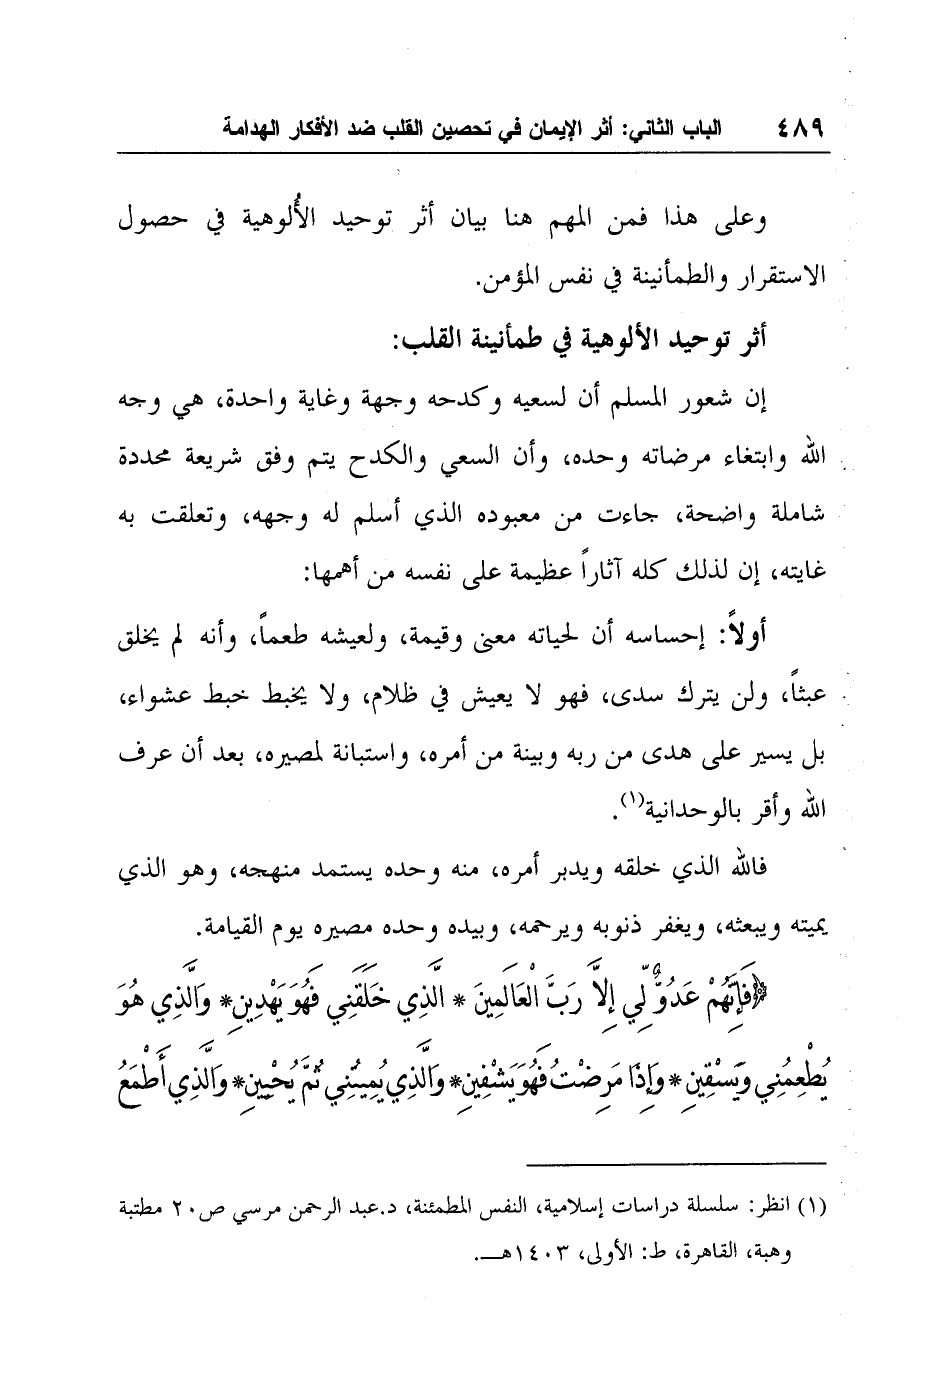 ٤٨٩ الباب الثاني: أثر الإيمان في تحصين القلب ضد الأفكار الهدامة
وعلى هذا فمن المهم هنا بيان أثر توحيد الأُلوهية في حصول
الاستقرار والطمأنينة في نفس المؤمن.
أثر توحيد الألوهية في طمأنينة القلب:
إن شعور المسلم أن لسعيه وكدحه وجهة وغاية واحدة، هي وجه
الله وابتغاء مرضاته وحده، وأن السعي والكدح يتم وفق شريعة محددة
شاملة واضحة، جاءت من معبوده الذي أسلم له وجهه، وتعلقت به
غايته، إن لذلك كله آثاراً عظيمة على نفسه من أهمها:
أولاً: إحساسه أن لحياته معنى وقيمة، ولعيشه طعماً، وأنه لم يخلق
عبثاً، ولن يترك سدى، فهو لا يعيش في ظلام، ولا يخبط خبط عشواء،
بل يسير على هدى من ربه وبينة من أمره، واستبانة لمصيره، بعد أن عرف
الله وأقر بالوحدانية(١).
فالله الذي خلقه ويدبر أمره، منه وحده يستمد منهجه، وهو الذي
يميته ويبعثه، ويغفر ذنوبه ويرحمه، وبيده وحده مصيره يوم القيامة.
﴿فَإِنَّهُمْ عَدُوٌّ لِّي إِلاَّ رَبَّ الْعَالَمِينَ * الَّذِي خَلَقَنِي فَهُوَ يَهْدِينِ * وَالَّذِي هُوَ
يُطْعِمُنِي وَيَسْقِينِ * وَإِذَا مَرِضْتُ فَهُوَ يَشْفِينِ * وَالَّذِي يُمِيتُنِي ثُمَّ يُحْيِينِ * وَالَّذِي أَطْمَعُ
(١) انظر: سلسلة دراسات إسلامية، النفس المطمئنة، د.عبد الرحمن مرسي ص٢٠ مطتبة
وهبة، القاهرة، ط: الأولى، ١٤٠٣هـ.